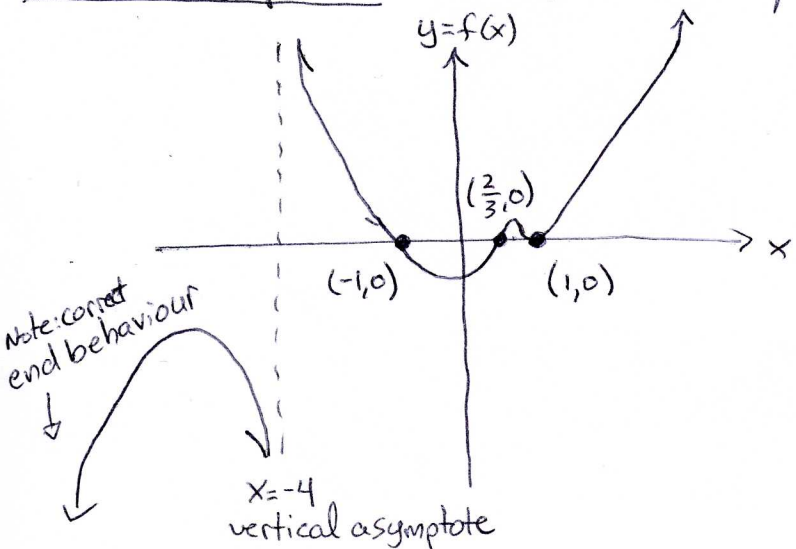 y=f(x)
(2/3,0)
x
(-1,0)
(1,0)
Note: correct
end behaviour
x=-4
vertical asymptote